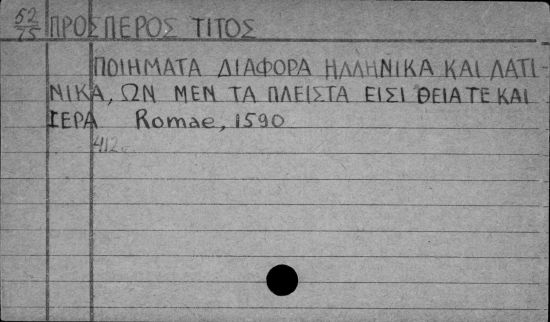 52
75 ΠΡΟΣΠΕΡΟΣ ΤΙΤΟΣ
ΠΟΙΗΜΑΤΑ ΔΙΑΦΟΡΑ ΗΛΛΗΝΙΚΑ ΚΑΙ ΛΑΤΙ-
ΝΙΚΑ, ΩΝ ΜΕΝ ΤΑ ΠΛΕΙΣΤΑ ΕΙΣΙ ΘΕΙΑ ΤΕ ΚΑΙ
ΙΕΡΑ Romae, 1590
412